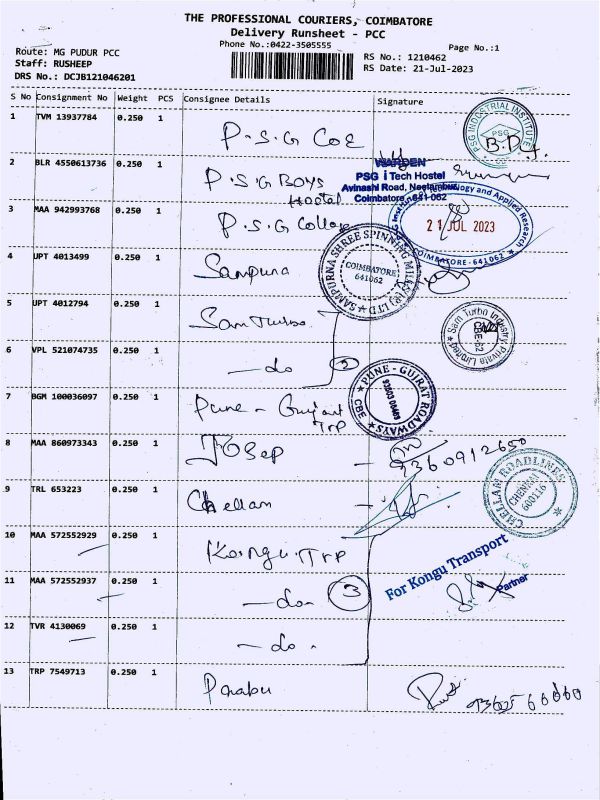 THE PROFESSIONAL COURIERS, COIMBATORE
Delivery Runsheet - PCC
Phone No.:0422-3505555
Page No.:1
Route: MG PUDUR PCC
Staff: RUSHEEP
DRS No.: DCJB121046201
RS No.: 1210462
RS Date: 21-Jul-2023
S No Consignment No Weight PCS Consignee Details Signature
1 TVM 13937784 0.250 1 P.S.G COE
PSG INDUSTRIAL INSTITUTE
PSG
2 BLR 4550613736 0.250 1 P.S.G BOYS
Hostal
WARDEN
PSG i Tech Hostel
Avinashi Road, Neelambur,
Coimbatore - 641 062
3 MAA 942993768 0.250 1 P.S.G College
and Applied Research
21 JUL 2023
COIMBATORE - 641 062
4 UPT 4013499 0.250 1 Sampuna
SAMPURNA SHREE SPINNING MILLS (P) LTD
COIMBATORE
641062
5 UPT 4012794 0.250 1 Sam Turbo
Sam Turbo Industry Private Limited
CBE-62
6 VPL 521074735 0.250 1 - do 2
7 BGM 100036097 0.250 1 Pune - Gujarat
Trp
PUNE - GUJRAT ROADWAYS
CBE
8 MAA 860973343 0.250 1 Josep
9360912650
9 TRL 653223 0.250 1 Chellam
CHELLAM ROADLINES
CHENNAI
600116
10 MAA 572552929 0.250 1 Kongu Trp
For Kongu Transport
Partner
11 MAA 572552937 0.250 1 - do - 3
12 TVR 4130069 0.250 1 - do .
13 TRP 7549713 0.250 1 Prabu